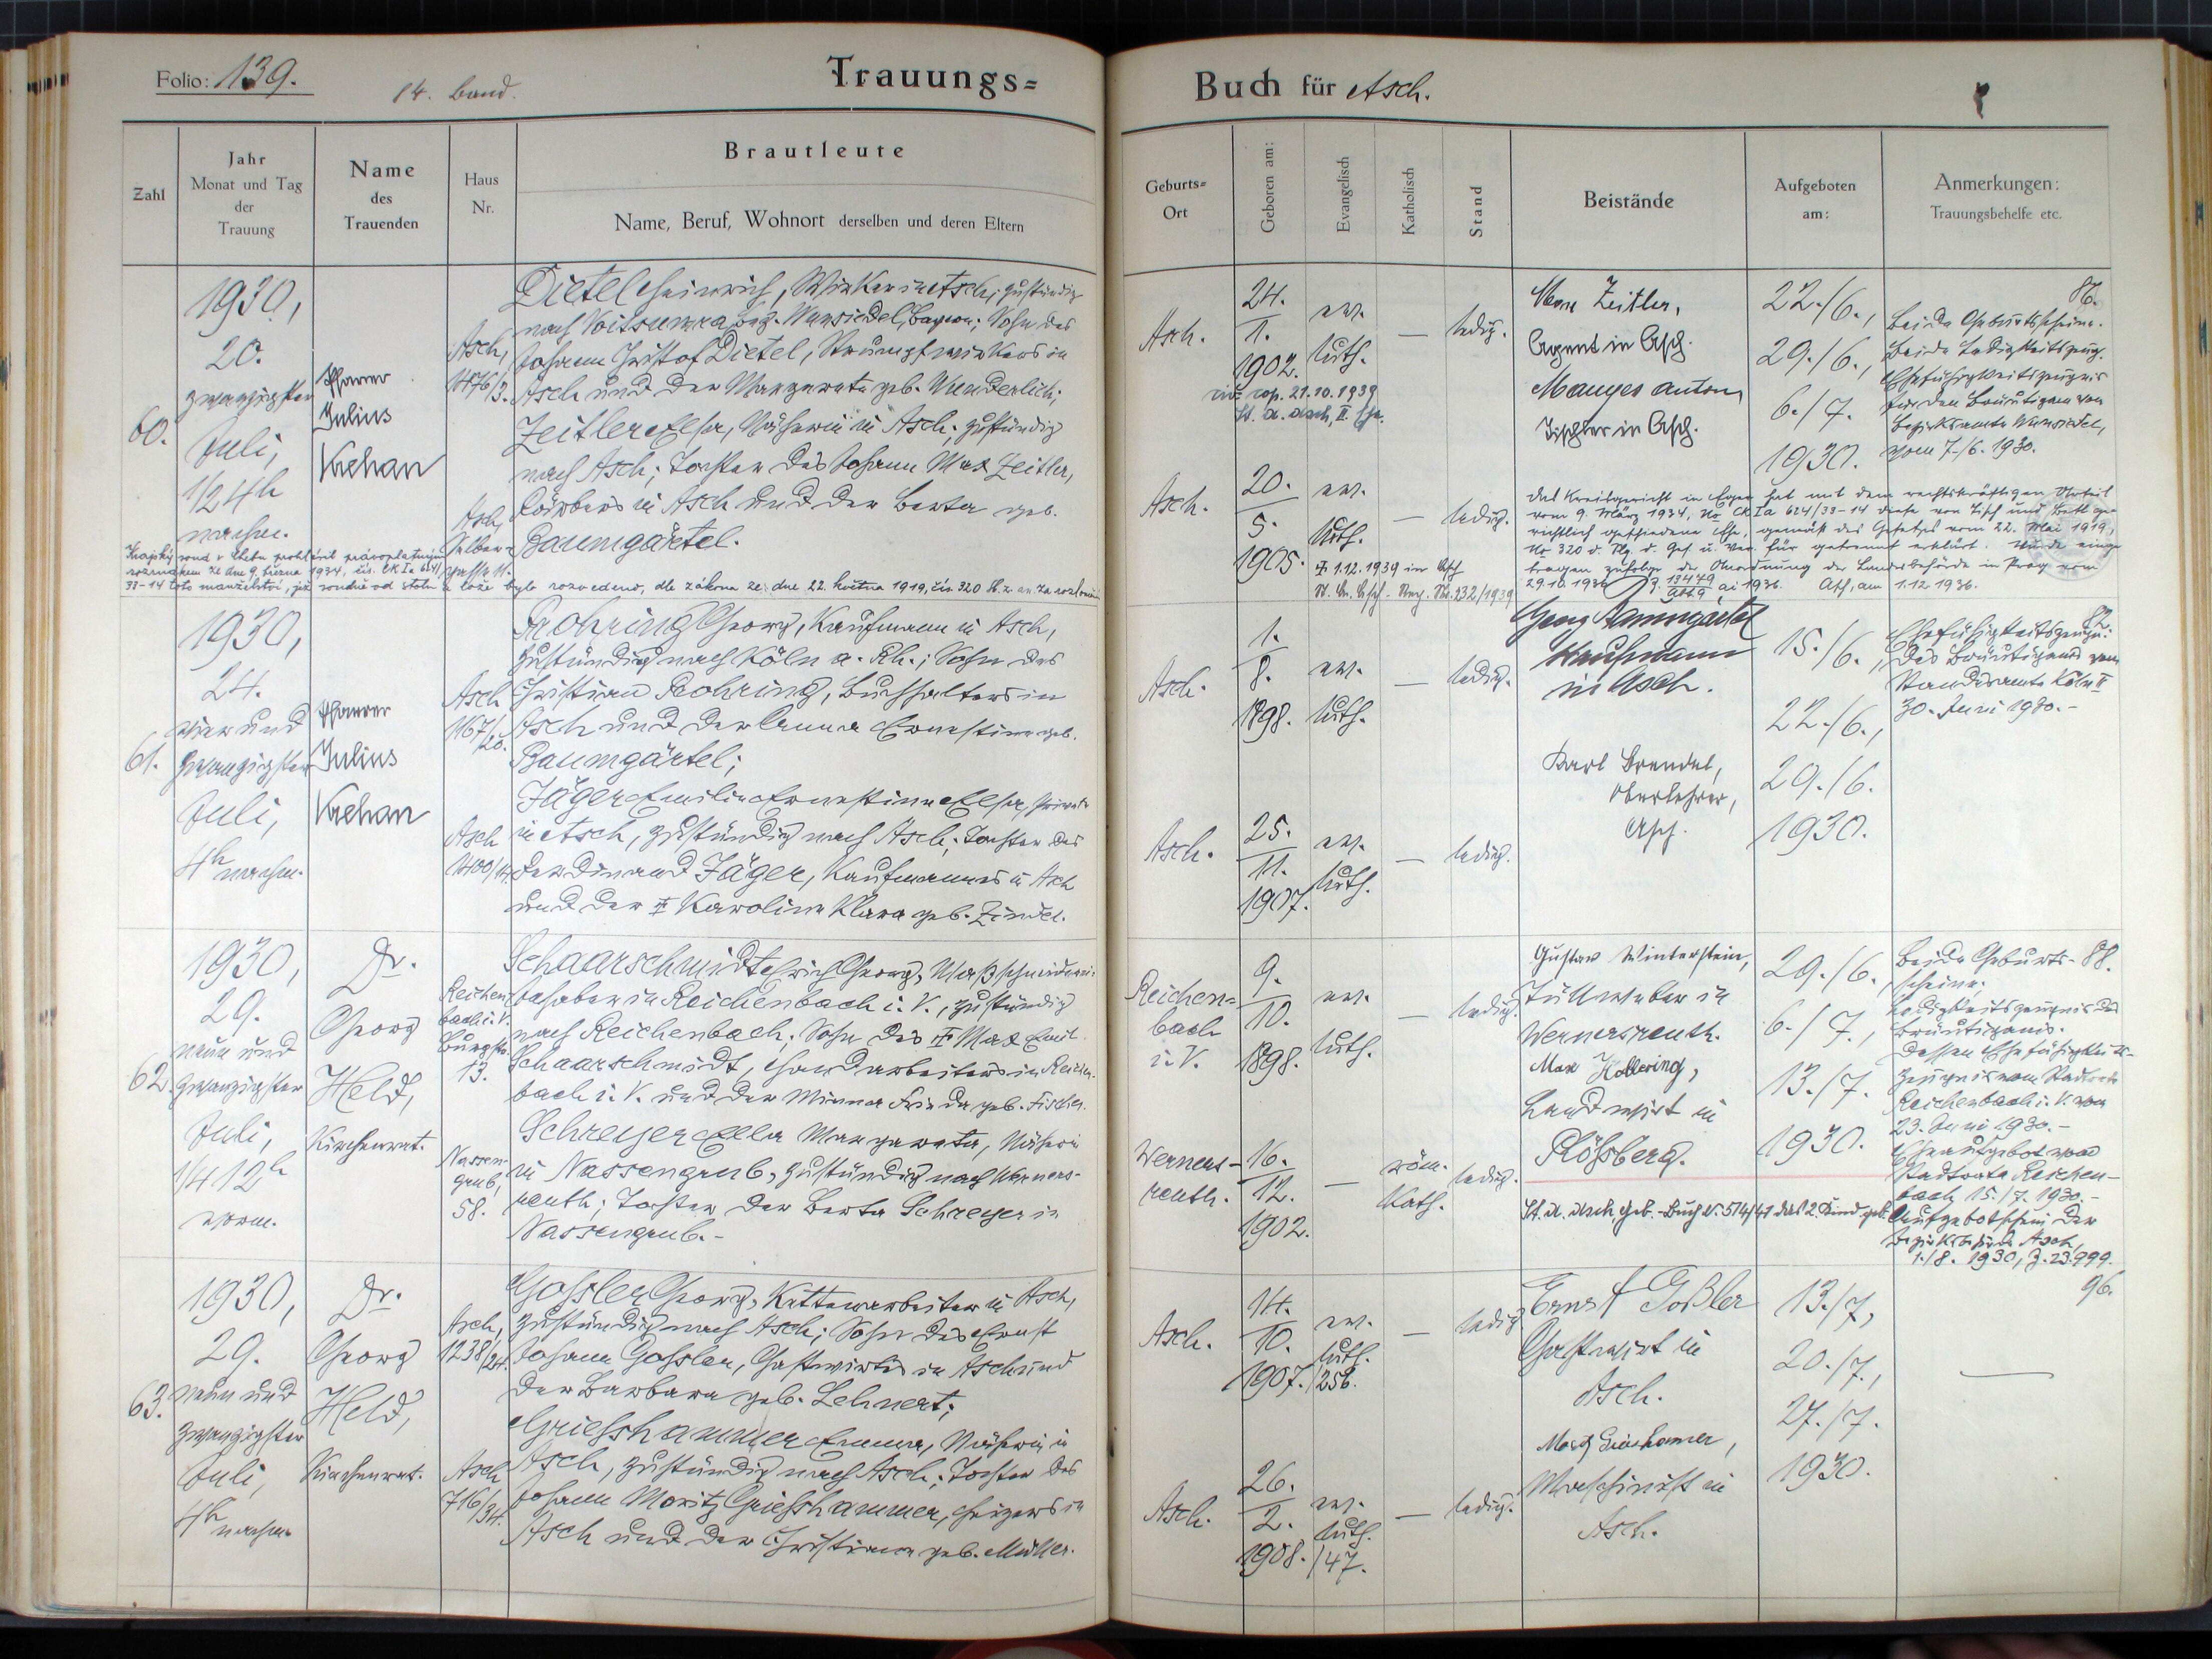 Folio: 139.
14. Band.
Trauungs=
Buch für Asch.
Zahl
Jahr
Monat und Tag
der
Trauung
Name
des
Trauenden
Haus
Nr.
Brautleute
Name, Beruf, Wohnort derselben und deren Eltern
Geburts=
Ort
Geboren am:
Evangelisch
Katholisch
Stand
Beistände
Aufgeboten
am:
Anmerkungen:
Trauungsbehelfe etc.
60.
1930,
20.
zwanzigster
Juli,
1/2 4h
nachm.
Pfarrer
Julius
Krehan
Asch,
1476/3.
Dietel Heinrich, Wirker in Asch, zuständig
nach Voitsumra, Bez. Wunsiedel, Bayern; Sohn des
Johann Christof Dietel, Strumpfwirkers in
Asch und der Margareta geb. Wunderlich;
Asch,
Zeitler Elsa, Näherin in Asch; zuständig
nach Asch; Tochter des Johann Max Zeitler,
Färbers in Asch und der Berta geb.
Baumgärtel.
Krajský soud v Chebu prohlásil právoplatným
rozsudkem ze dne 9. března 1934, čís. Ck Ia 624/
33-14 toto manželství, jež soudně od stolu a lože bylo rozvedeno, dle zákona ze dne 22. května 1919, čís. 320 Sb. z. a n. za rozloučené
Asch.
24.
1.
1902.
ev.
luth.
—
ledig.
cop. 21.10.1939
St. A. Asch, II. Ehe.
Max Zeitler,
Agent in Asch.
Manges Anton,
Tischler in Asch.
22./6.,
29./6.,
6./7.
1930.
86.
Beide Geburtsscheine.
Beide Ledigkeitszeug.
Ehefähigkeitszeugnis
für den Bräutigam vom
Bezirksamte Wunsiedel,
vom 7./6. 1930.
Asch.
20.
5.
1905.
ev.
luth.
—
ledig.
1.12.1939 in Asch
St. A. Asch. Reg. Nr. 232/1939
Das Kreisgericht in Eger hat mit dem rechtskräftigen Urteil
vom 9. März 1934, No Ck Ia 624/33-14 diese von Tisch und Bett ge-
richtlich geschiedene Ehe, gemäß des Gesetzes vom 22. Mai 1919,
No 320 d. Slg. d. Ges. u. Ver. für getrennt erklärt. Wurde einge-
tragen zufolge der Anordnung der Landesbehörde in Prag vom
29.10.1936 Z. 13479 ai 1936. Asch, am 1.12.1936.
61.
1930,
24.
vierund
zwanzigster
Juli,
4h nachm.
Pfarrer
Julius
Krehan
Asch
1167/20.
Rohring Georg, Kaufmann in Asch,
zuständig nach Köln a. Rh.; Sohn des
Christian Rohring, Buchhalters in
Asch und der Anna Ernestine geb.
Baumgärtel;
Asch
1400/14.
Jäger Emilie Ernestine Elsa, Private
in Asch, zuständig nach Asch; Tochter des
Ferdinand Jäger, Kaufmannes in Asch
und der Karoline Klara geb. Zindel.
Asch.
1.
8.
1898.
ev.
luth.
—
ledig.
Georg Baumgärtel
Kaufmann
in Asch.
15./6.,
22./6.,
29./6.
1930.
82.
Ehefähigkeitszeugn.
des Bräutigams vom
Standesamte Köln II
30. Juni 1930.-
Asch.
25.
11.
1907.
ev.
luth.
—
ledig.
Karl Brendel,
Oberlehrer,
Asch.
62.
1930,
29.
neun und
zwanzigster
Juli,
1/4 12h
vorm.
Dr.
Georg
Held,
Kirchenrat.
Reichen-
bach i. V.
Burgstr.
13.
Schaarschmidt Erich Georg, Maßschneiderei-
Inhaber in Reichenbach i. V., zuständig
nach Reichenbach; Sohn des Max Emil
Schaarschmidt, Handarbeiters in Reichen-
bach i. V. und der Minna Frieda geb. Fischer.
Nassen-
grub,
58.
Schreyer Ella Margareta, Näherin
in Nassengrub, zuständig nach Werners-
reuth; Tochter der Berta Schreyer in
Nassengrub.-
Reichen=
bach
i. V.
9.
10.
1898.
ev.
luth.
—
ledig.
Gustav Winterstein,
Tüllweber in
Wernersreuth.
Max Hollering,
Landwirt in
Rößberg.
29./6.
6./7.,
13./7.
1930.
88.
Beide Geburts-
scheine.
Ledigkeitszeugnis des
Bräutigams.
Dessen Ehefähigkeits-
zeugnis vom Stadtrate
Reichenbach i. V. vom
23. Juni 1930.-
Eheaufgebot vom
Stadtrate Reichen-
bach 15./7. 1930.-
Aufgebotschein der
Bezirksbehörde Asch,
1./8. 1930, Z. 23.999.
Werners-
reuth.
16.
12.
1902.
—
röm.
kath.
ledig.
St. A. Asch Geb.-Buch Nr. 514/41 das 2. Kind geb.
63.
1930,
29.
neun und
zwanzigster
Juli,
4h nachm.
Dr.
Georg
Held,
Kirchenrat.
Asch,
1238/24.
Gossler Georg, Kettenarbeiter in Asch,
zuständig nach Asch; Sohn des Ernst
Johann Gossler, Gastwirtes in Asch und
der Barbara geb. Lehnert;
Asch
716/34.
Griesshammer Emma, Näherin in
Asch, zuständig nach Asch; Tochter des
Johann Moritz Griesshammer, Heizers in
Asch und der Christiane geb. Müller.
Asch.
14.
10.
1907.
ev.
luth.
/256.
—
ledig.
Ernst Goßler
Gastwirt in
Asch.
13./7,
20./7.,
27./7.
1930.
96.
—
Asch.
26.
2.
1908.
ev.
luth.
/47.
—
ledig.
Moritz Grieshamer,
Maschinist in
Asch.